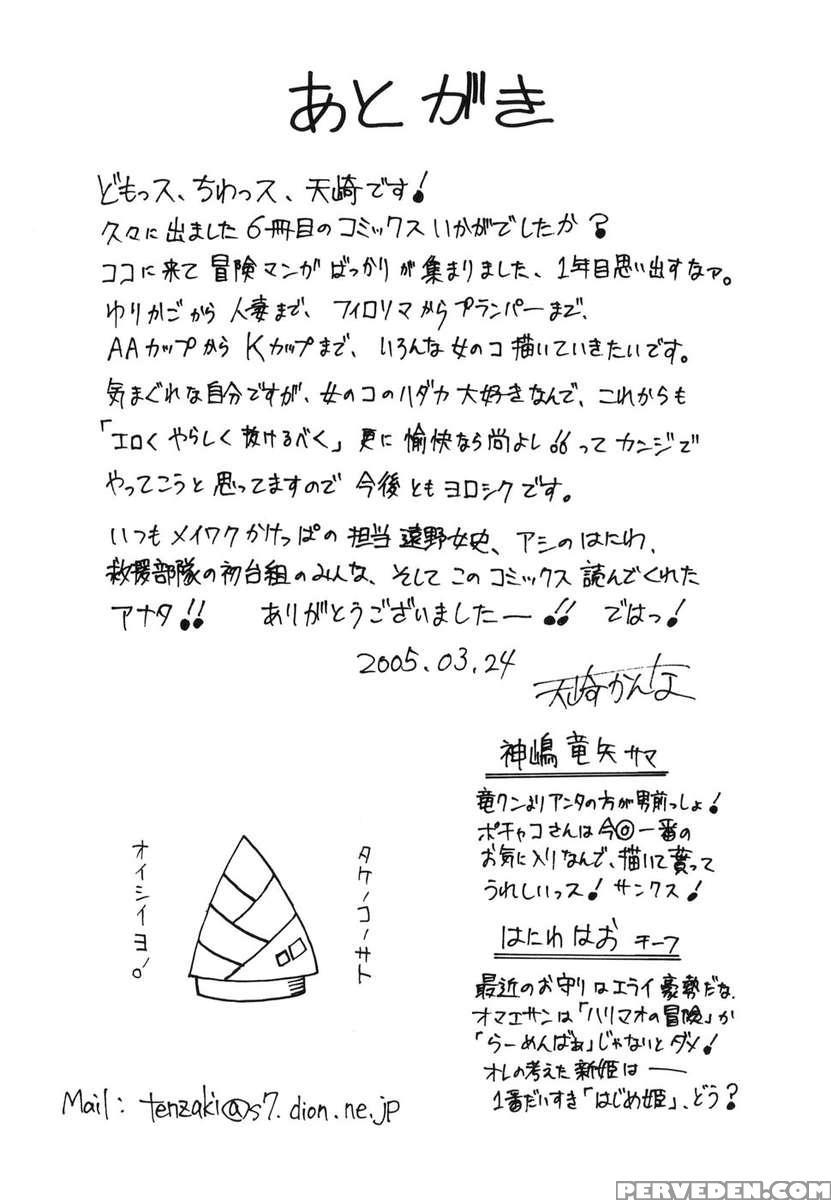 あとがき
どもっス、ちわっス、天崎です!
久々に出ました6冊目のコミックスいかがでしたか?
ココに来て冒険マンガばっかりが集まりました、1年目思い出すなァ。
ゆりかごから人妻まで、フィロリマからプランパーまで、
AAカップからKカップまで、いろんな女のコ描いていきたいです。
気まぐれな自分ですが、女のコのハダカ大好きなんで、これからも
「エロくやらしく抜けるべく」更に愉快なら尚よし!!ってカンジで
やってこうと思ってますので今後ともヨロシクです。
いつもメイワクかけっぱの担当遠野女史、アシのはにわ、
救援部隊の初台組のみんな、そしてこのコミックス読んでくれた
アナタ!! ありがとうございましたー!! ではっ!
2005.03.24
天崎かんな
神嶋竜矢サマ
竜クンよりアンタの方が男前っしょ!
ポチャコさんは今◎一番の
お気に入りなんで、描いて貰って
うれしいっス!サンクス!
タケノコノサト
オイシイヨ。
はにわはお チーフ
最近のお守りはエライ豪勢だな、
オマエサンは「ハリマオの冒険」か
「らーめんばぁ」じゃないとダメ!
オレの考えた新姫は――
1番だいすき「はじめ姫」、どう?
Mail: tenzaki@s7.dion.ne.jp
PERVEDEN.COM